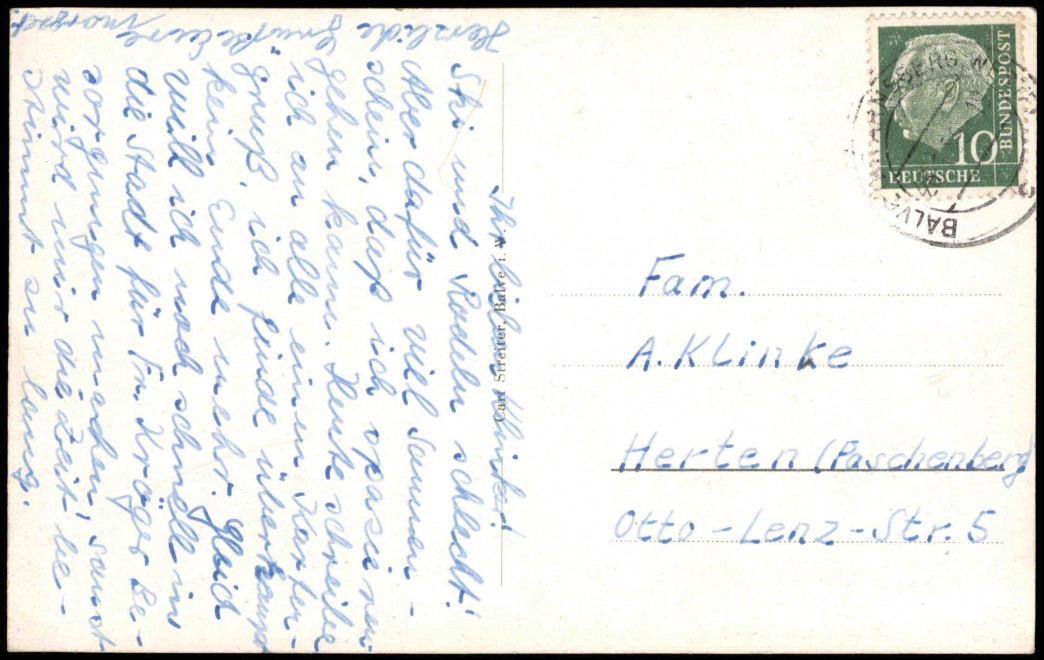 Ihr lieben Klinkes!
Ski und Rodeln schlecht!
Aber dafür vill Sonnen-
schein, das ich spazieren
gehen kann. Heute schreibe
ich an alle einen Karten-
gruß, ich finde überhaupt
kein Ende mehr. Gleich
will ich noch schnell in
die Stadt für Fr. Kröger Be-
sorgungen machen, sonst
wird mir die Zeit be-
stimmt zu lang.
Herzliche Grüße Eure
Margret
Carl Streiter, Balve i. W.
DEUTSCHE
BUNDESPOST
10
BALVE
ARNSBERG
Fam.
A. Klinke
Herten (Paschenberg)
Otto-Lenz-Str. 5